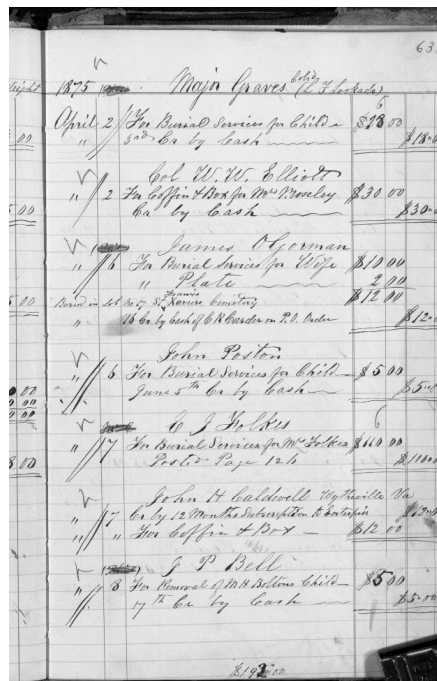 63
1875 Major Graves Colrd
April 2 For Burial Services for Child $18.00
" 3rd Cr by Cash $18.0
Col W. W. Elliott
" 2 For Coffin & Box for Mrs Moseley $30 00
Cr by Cash $30.0
James O'Gorman
" 6 For Burial Services for Wife $10 00
" Plate 2 00
Buried in Lot No 57 St Francis Xaviers Cemetery $12 00
" 16 Cr by Cash of C R Carder on P.O. Order $12.0
John Poston
" 6 For Burial Services for Child $5 00
June 5th Cr by Cash $5.0
C J Folkes
" 7 For Burial Services for Mrs Folkes
Posted Page 126
John H Caldwell Wytheville Va
" 7 Cr by 12 Months Subscription to Enterprise $12.0
" " For Coffin & Box $12 00
J P Bell
" 8 For Removal of M H Boltons Child $5 00
17th Cr by Cash $5.00